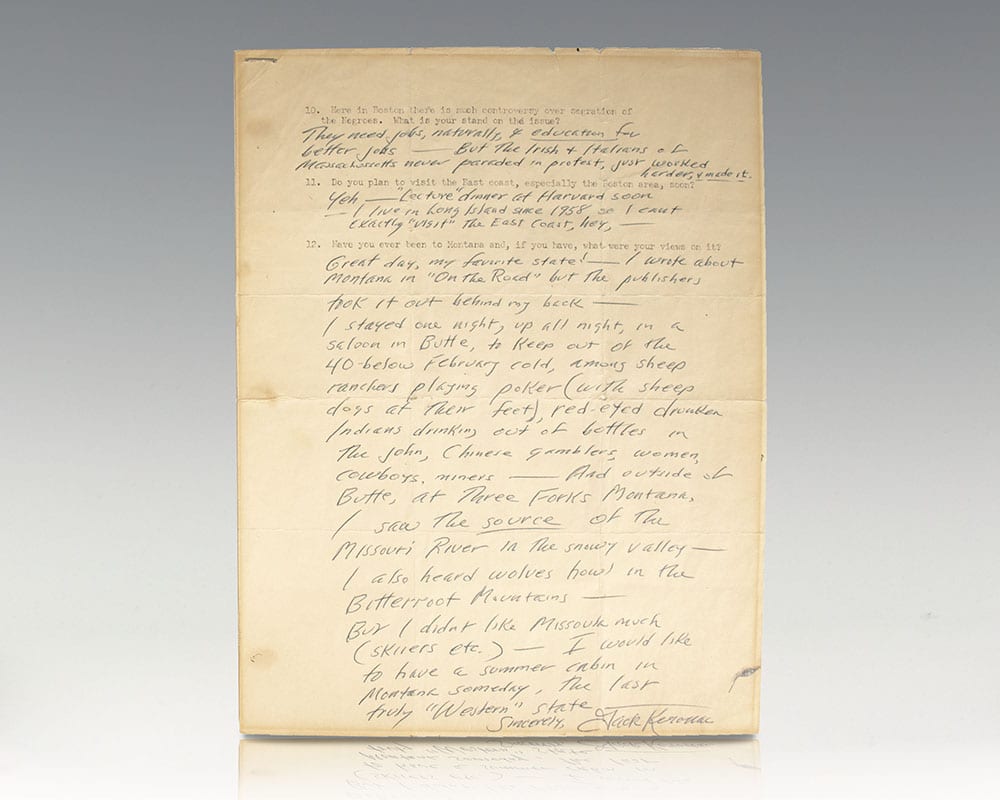 10. Here in Boston there is much controversy over segration of
the Negroes. What is your stand on the issue?
They need jobs, naturally, & education for
better jobs — But the Irish & Italians of
Massachusetts never paraded in protest, just worked
harder, & made it.
11. Do you plan to visit the East coast, especially the Boston area, soon?
Yeh — "Lecture" dinner at Harvard soon
— I live in Long Island since 1958 so I cant
exactly "visit" the East Coast, hey, —
12. Have you ever been to Montana and, if you have, what were your views on it?
Great day, my favorite state! — I wrote about
Montana in "On the Road" but the publishers
took it out behind my back —
I stayed one night, up all night, in a
saloon in Butte, to keep out of the
40-below February cold, among sheep
ranchers playing poker (with sheep
dogs at their feet), red-eyed drunken
Indians drinking out of bottles in
the john, Chinese gamblers, women,
cowboys, miners — And outside of
Butte, at Three Forks Montana,
I saw the source of the
Missouri River in the snowy valley —
I also heard wolves howl in the
Bitterroot Mountains —
But I didnt like Missoula much
(skiiers etc.) — I would like
to have a summer cabin in
Montana someday, the last
truly "Western" state
Sincerely, Jack Kerouac